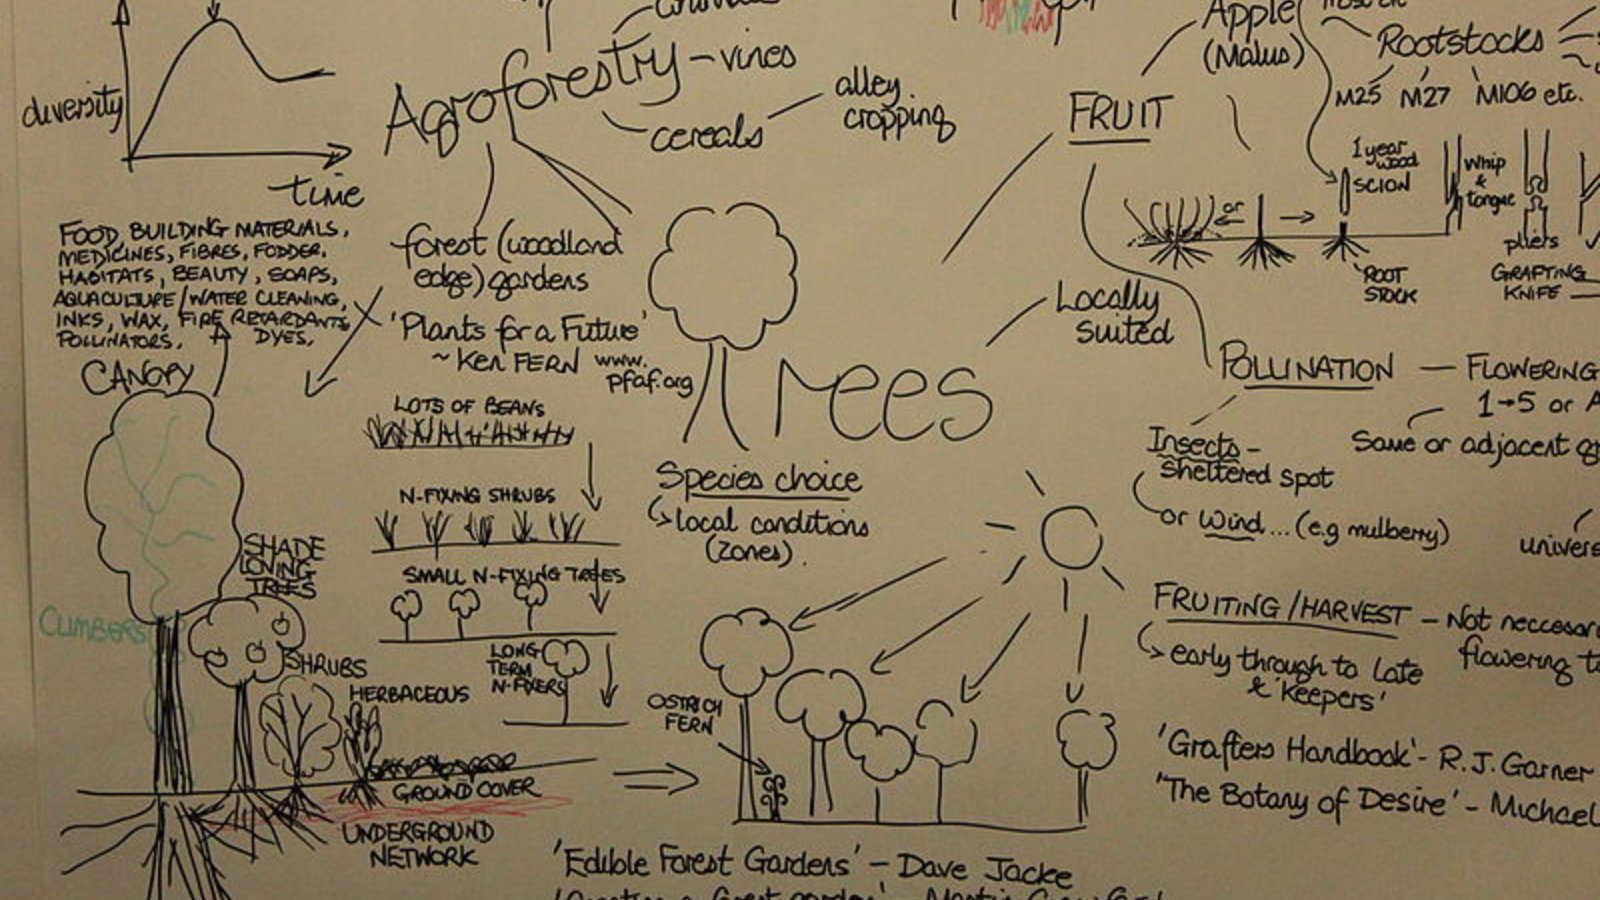 diversity
time
Agroforestry - vines
cereals
alley
cropping
FOOD, BUILDING MATERIALS,
MEDICINES, FIBRES, FODDER,
HABITATS, BEAUTY, SOAPS,
AQUACULTURE/WATER CLEANING,
INKS, WAX, FIRE RETARDANTS,
POLLINATORS. DYES.
CANOPY
CLIMBERS
SHADE
LOVING
TREES
SHRUBS
HERBACEOUS
GROUND COVER
UNDERGROUND
NETWORK
forest (woodland
edge) gardens
'Plants for a Future'
~ Ken FERN www.
pfaf.org
LOTS OF BEANS
N-FIXING SHRUBS
SMALL N-FIXING TREES
LONG
TERM
N-FIXERS
Trees
Species choice
local conditions
(zones).
OSTRICH
FERN
'Edible Forest Gardens' - Dave Jacke
FRUIT
Apple
(Malus)
Rootstocks
M25 M27 M106 etc.
1 year
wood
SCION
or
whip
&
tongue
pliers
ROOT
STOCK
GRAFTING
KNIFE
Locally
suited
POLLINATION - FLOWERING
1→5 or A
Same or adjacent
Insects -
sheltered spot
or wind... (e.g mulberry)
univers
FRUITING/HARVEST - Not neccesar
flowering t
early through to late
& 'keepers'
'Grafters Handbook' - R.J. Garner
'The Botany of Desire' - Michael